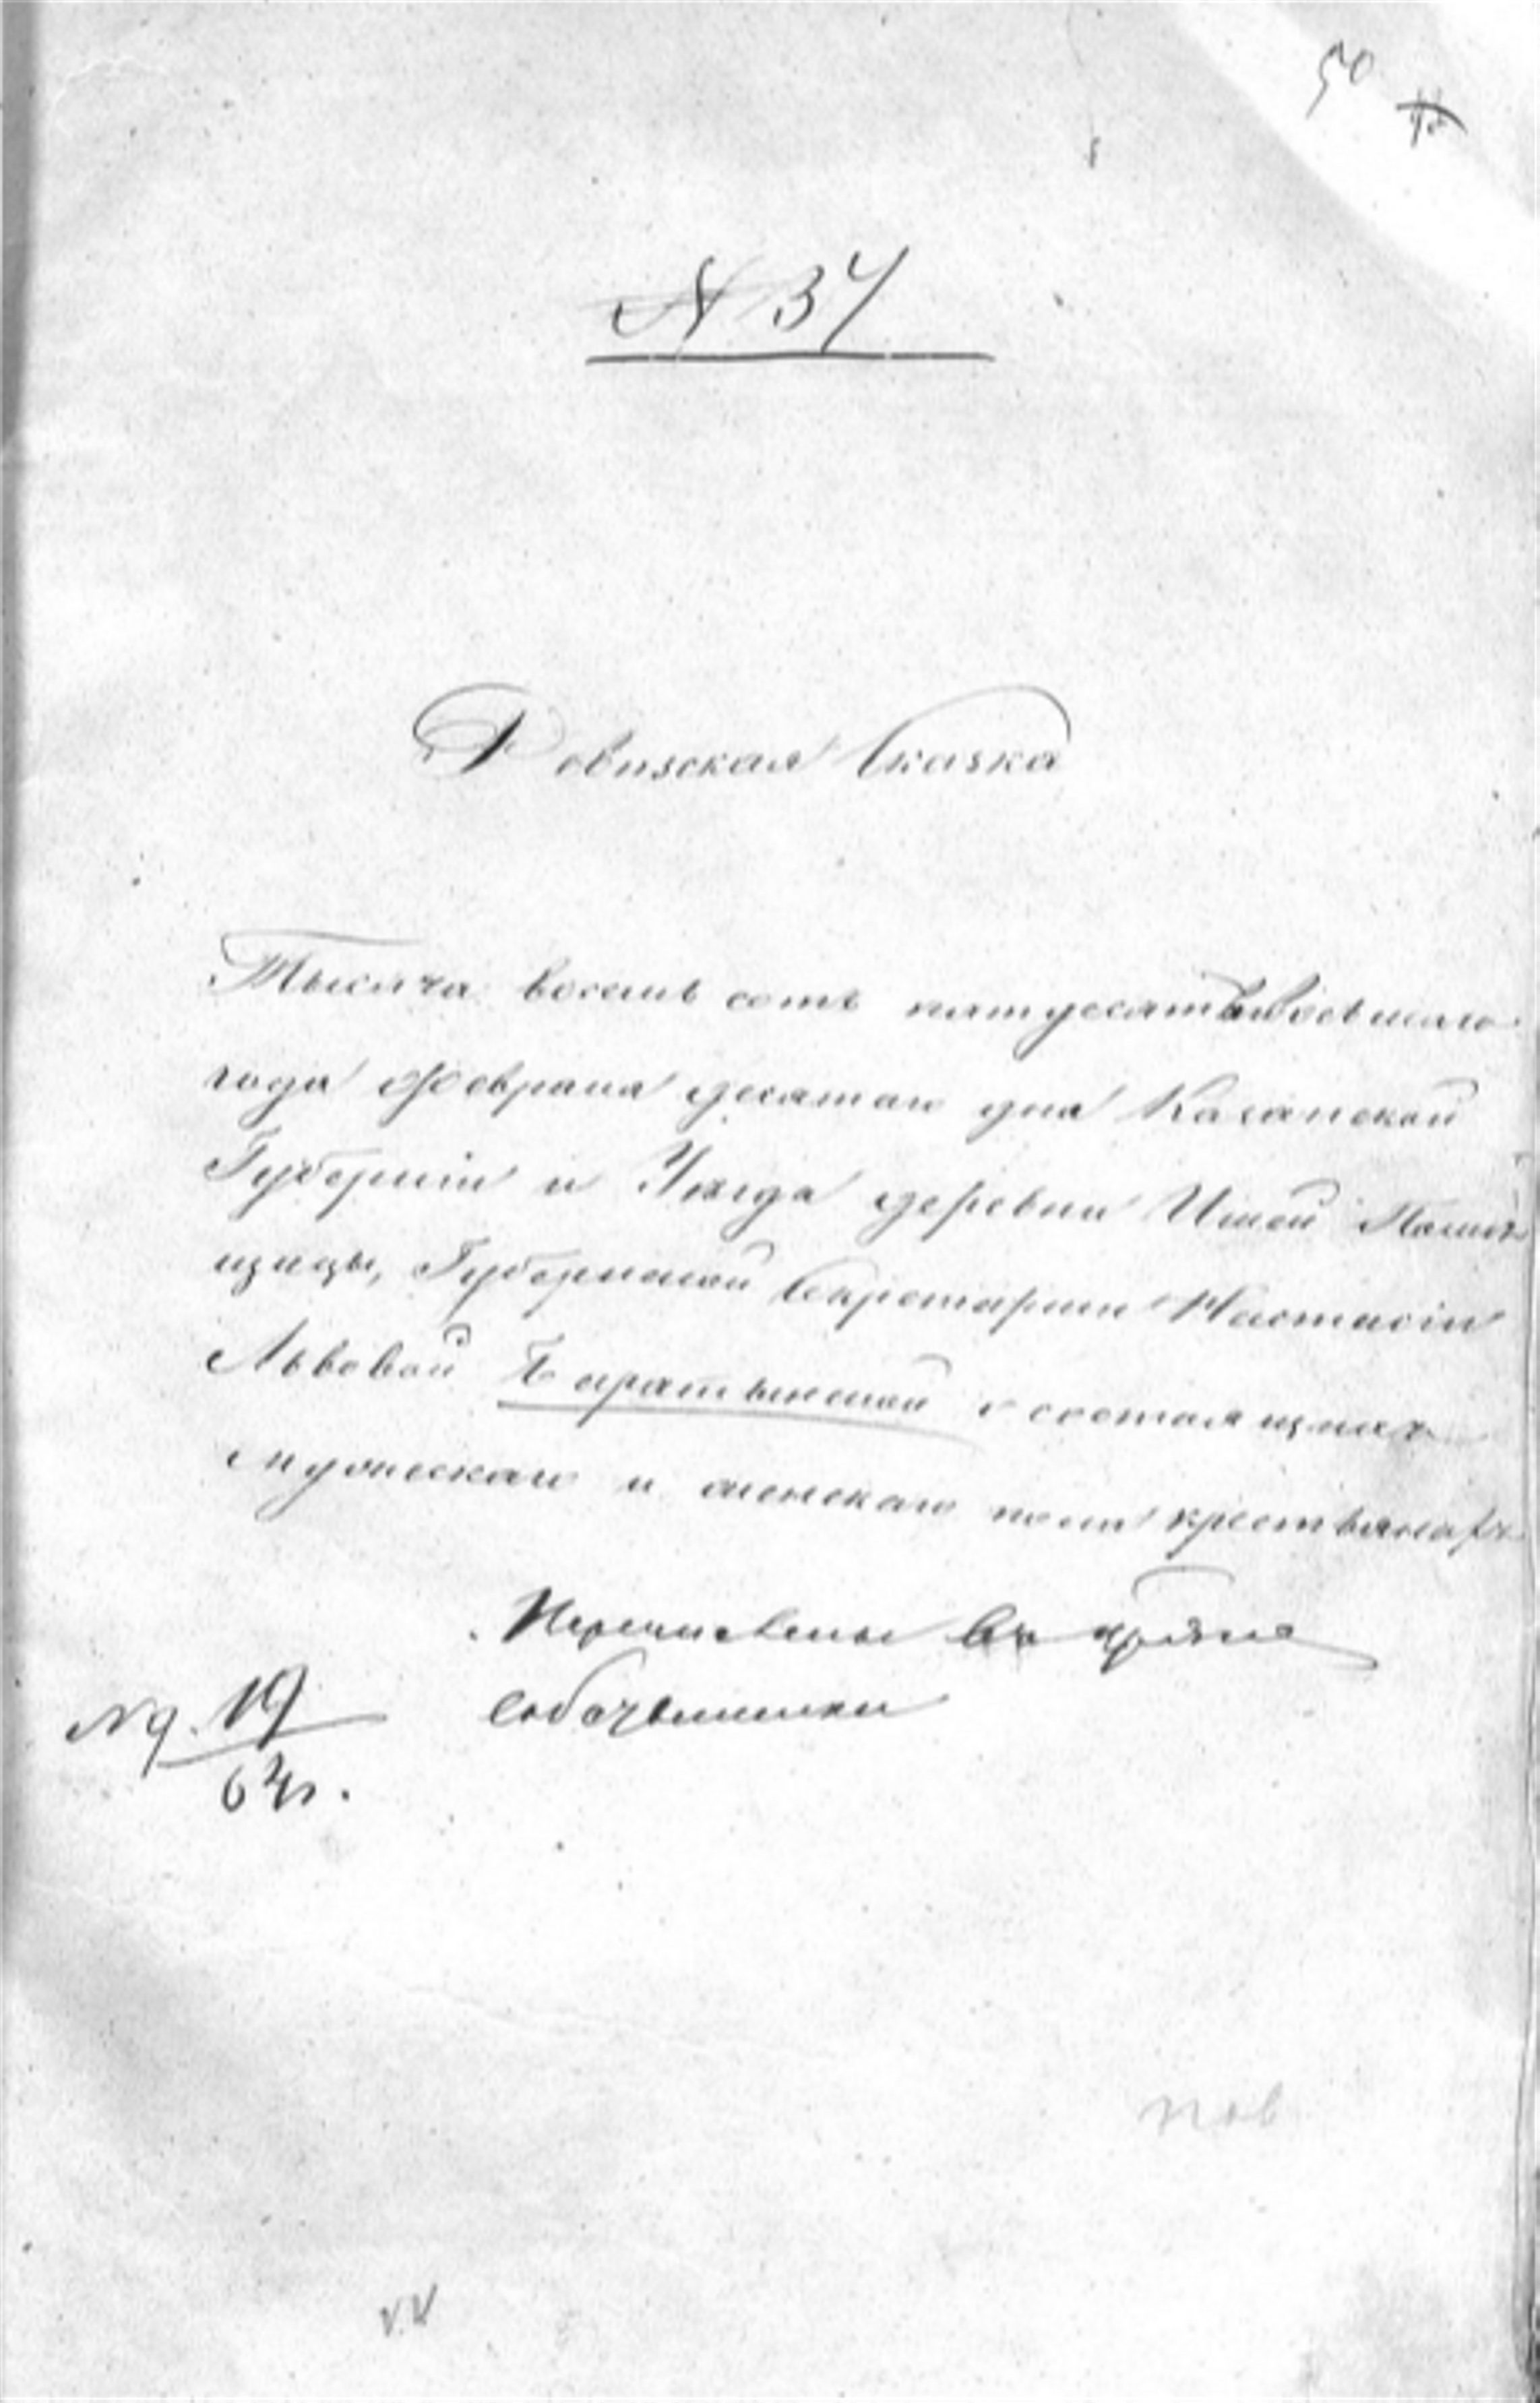 50
№ 37
Ревизская Сказка
Тысяча восемь сотъ пятьдесятъ восьмаго
года Февраля десятаго дня Казанской
Губерніи и Уезда деревни Ишей Помѣ
щицы, Губернской Секретарши Настасіи
Львовой Баратынской о состоящихъ
мужескаго и женскаго пола крестьянахъ
Перечислены
19